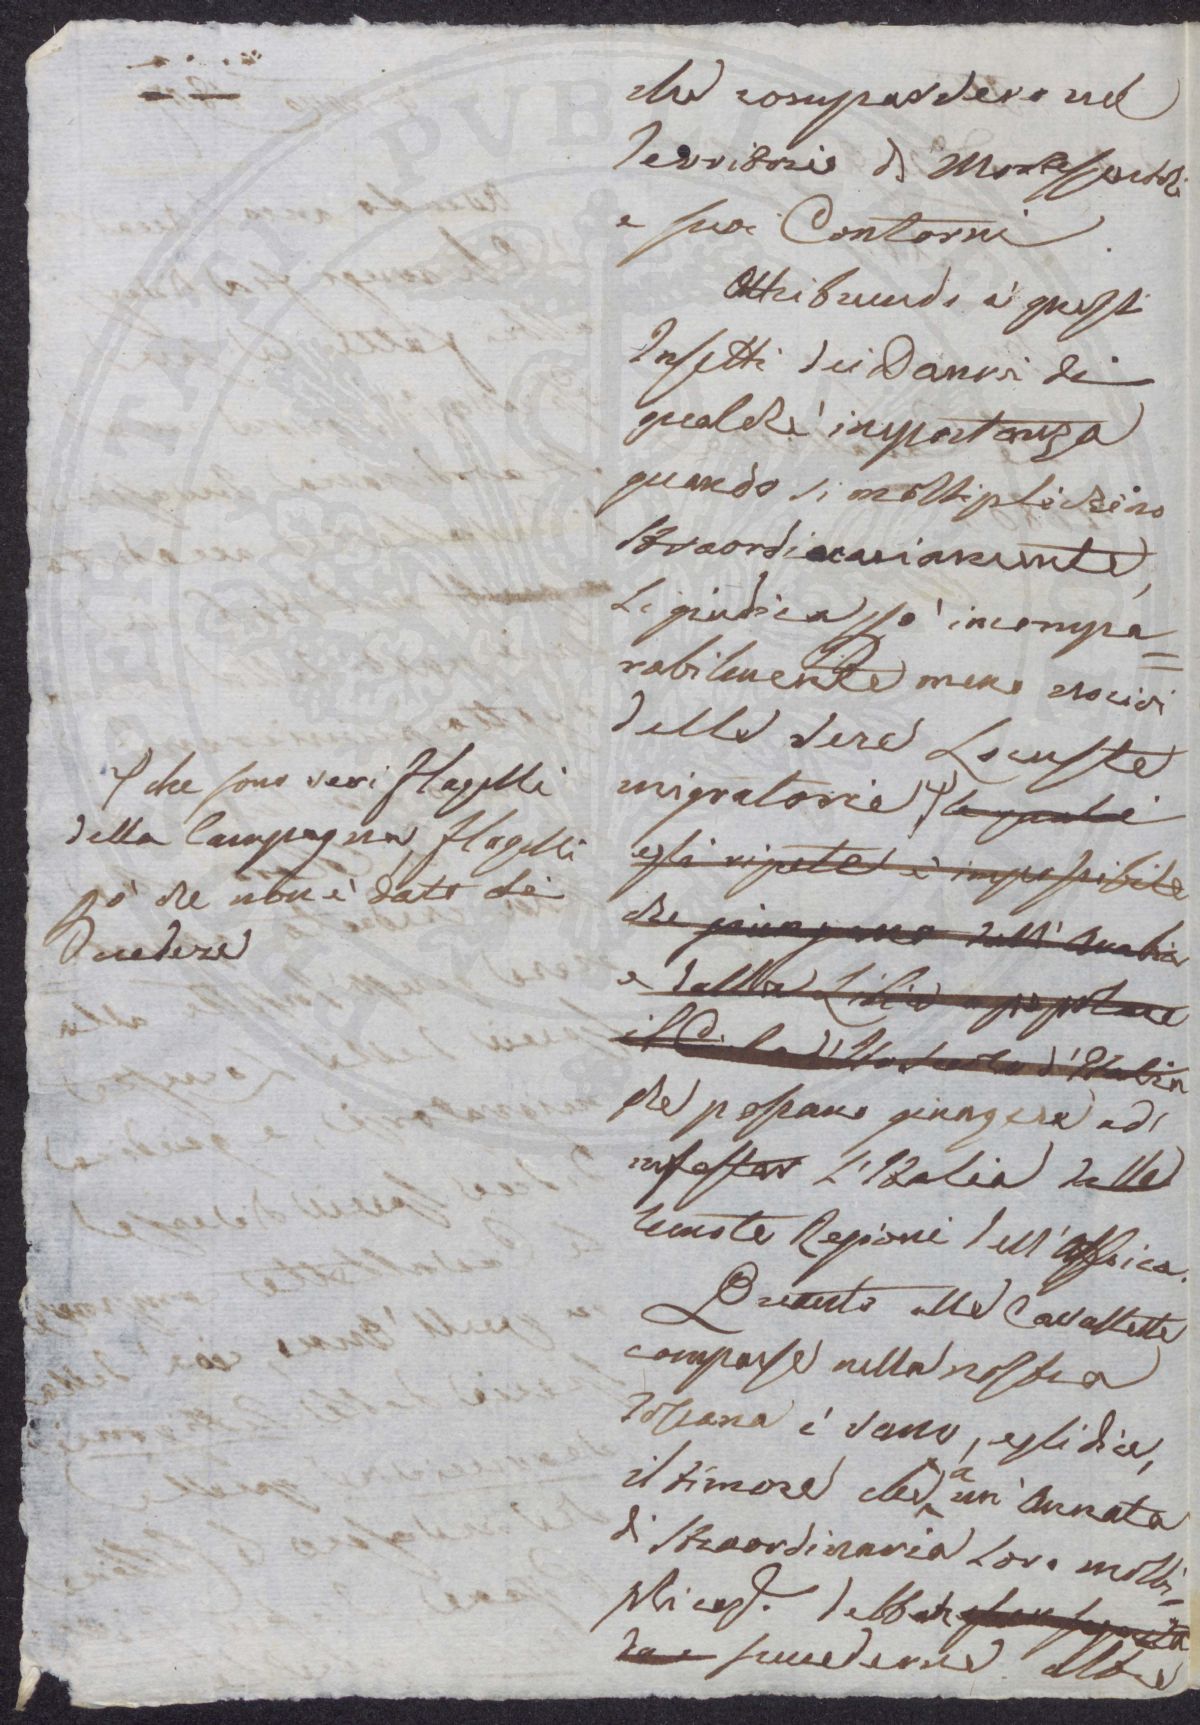 che comparvero nel
Territorio di Montespertoli
e suoi Contorni
Attribuendo a' questi
Insetti dei Danni di
qualche importanza
quando si moltiplichino
straordinariamente,
Li giudica p.o' incompa=
rabilmente meno nocivi
delle vere Locuste
migratorie le quali
egli ripete è impossibile
che giungano dall' Arabia
e dalla Libia a popolare
il d'Italia
che possano giungere ad
infestar L'Italia dalle
remote Regioni dell' Affrica.
Quanto alle Cavallette
comparse nella nostra
Toscana è vano, egli dice,
il timore che a un' Annata
di straordinaria Loro molti=
plicaz. debba
succederne altre
che sono veri flagelli
della Campagna, flagelli
p.o' che non è dato di
credere